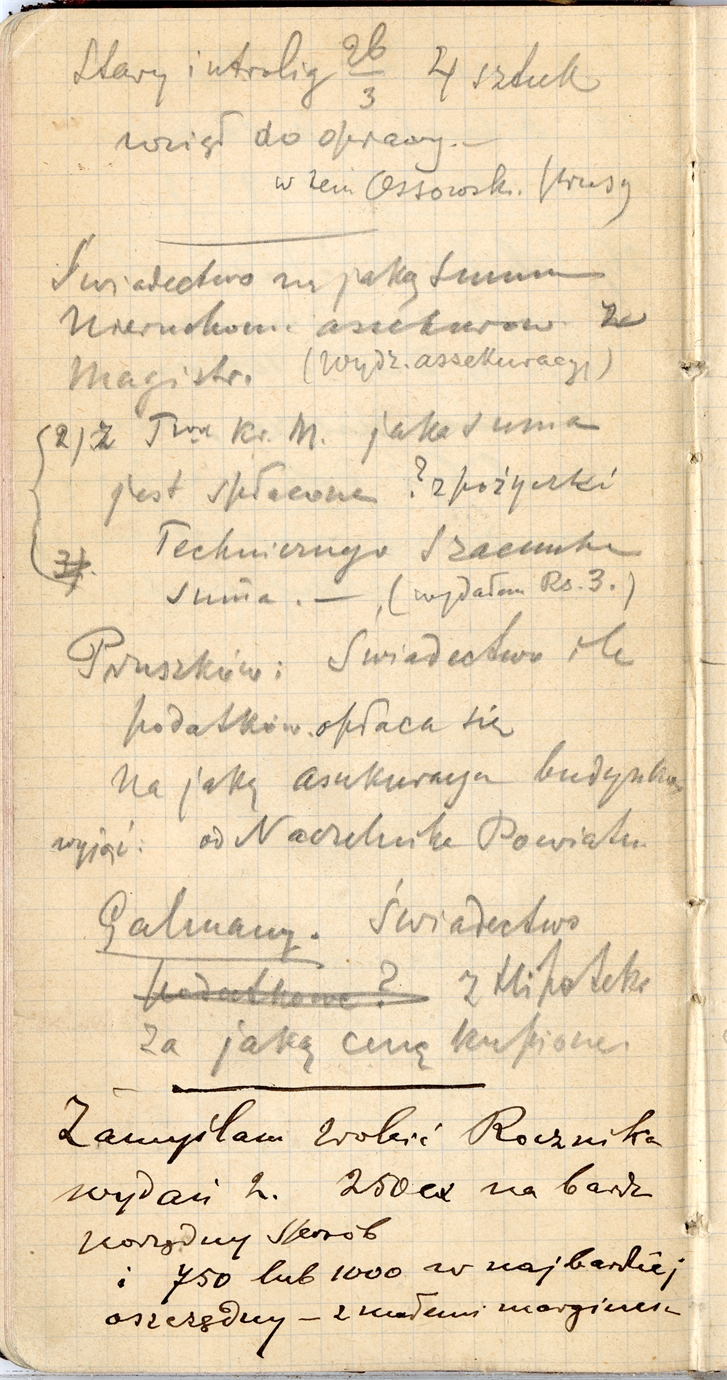 Stary introlig 26/3 4 sztuk
wziął do oprawy.—
w tem Ossowsk. Prusy
Świadectwo na jaką Summ
Nieruchom. assekurow. Ze
Magistr. (Wydz. assekuracyj)
2) Z Twa Kr. M. jaka suma
jest spłacona ? z pożyczki
3
Technicznego Szacunku
suma. — (wydałem Rs. 3.)
Pruszków: Świadectwo ile
podatków. opłaca się
na jaką asekuracya budynków
wyjąć: od Naczelnika Powiatu
Galmany. Świadectwo
podatkowe ? z Hipoteki
Za jaką cenę kupione.
Zamyślam zrobić Rocznika
wydań 2. 250 ex na bardz
porządny sposób
i 750 lub 1000 w najbardziej
oszczędny – z małemi margines